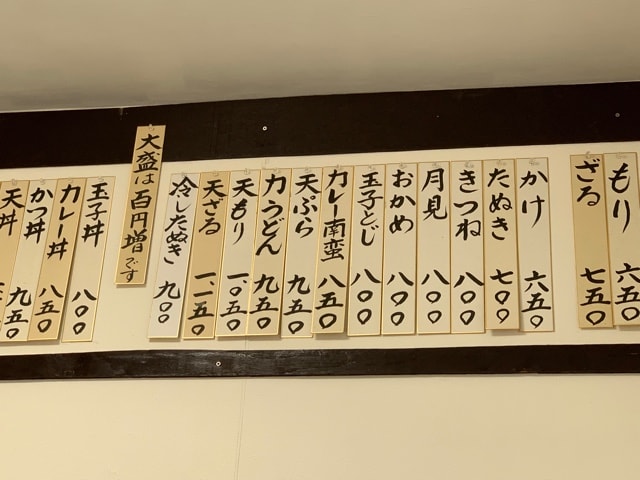 もり 六五〇
ざる 七五〇
かけ 六五〇
たぬき 七〇〇
きつね 八〇〇
月見 八〇〇
おかめ 八〇〇
玉子とじ 八〇〇
カレー南蛮 八五〇
天ぷら 九五〇
力うどん 九五〇
天もり 一、〇五〇
天ざる 一、一五〇
冷したぬき 九〇〇
大盛は百円増です
玉子丼 八〇〇
カレー丼 八五〇
かつ丼 九五〇
天丼